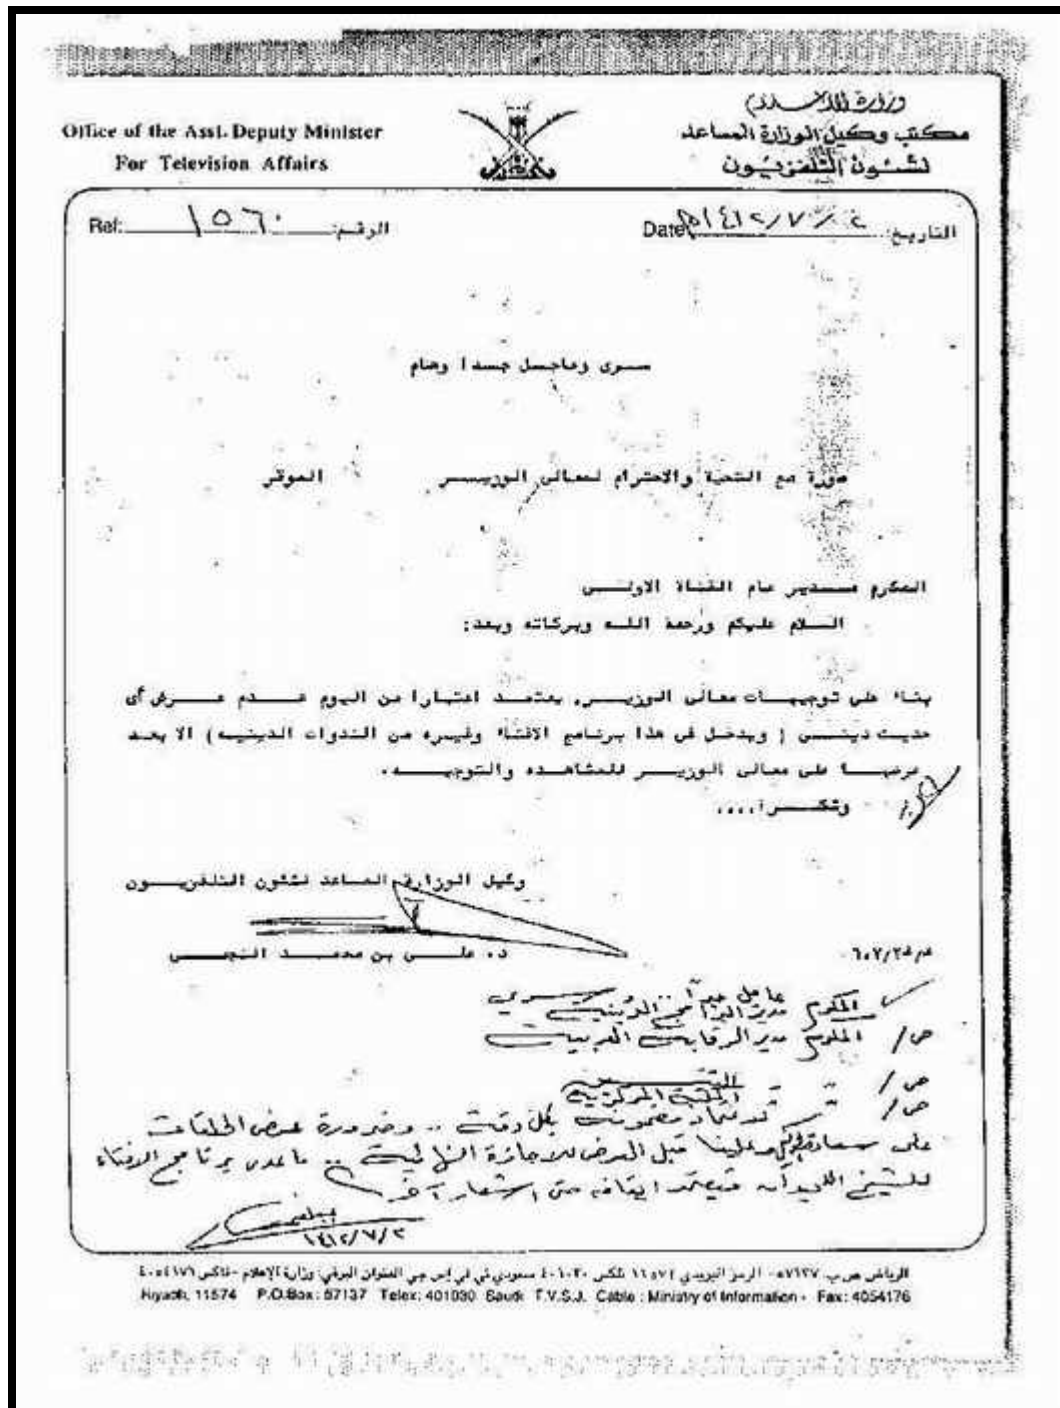 Office of the Asst. Deputy Minister
For Television Affairs
وزارة الإعلام
مكتب وكيل الوزارة المساعد
لشئون التلفزيون
Ref: ١٥٦٠ الرقم:
Date ١٤١٢/٧/٢هـ التاريخ:
سرى وعاجل جدا وهام
صورة مع التحية والاحترام لمعالى الوزير الموقر
المكرم مدير عام القناة الاولى
السلام عليكم ورحمة الله وبركاته وبعد:
بناء على توجيهات معالى الوزير، يعتمد اعتبارا من اليوم عدم عرض أى
حديث دينى ( ويدخل فى هذا برنامج الافتاء وغيره من الندوات الدينيه) الا بعد
عرضها على معالى الوزير للمشاهده والتوجيه.
وشكرا....
وكيل الوزارة المساعد لشئون التلفزيون
د. على بن محمد النجعى
عاجل جداً .. وسري
المكرم مدير البرامج الدينية
ص/ المكرم مدير الرقابة العربية
ص/ التنسيق
ص/ المكتبة المركزية
مضمونه بكل دقة .. وضرورة عرض الحلقات
على سعادة وعلينا قبل العرض للاجازة النهائية .. ماعدى برنامج الافتاء
للشيخ اللحيدان فيعتمد ايقافه حتى اشعار آخر
١٤١٢/٧/٢
الرياض ص.ب ٥٧١٣٧ - الرمز البريدي ١١٥٧٤ تلكس ٤٠١٠٣٠ سعودي تي في إس جي العنوان البرقي: وزارة الإعلام - فاكس ٤٠٥٤١٧٦
Riyadh, 11574 P.O.Box: 57137 Telex: 401030 Saudi T.V.S.J. Cable: Ministry of Information - Fax: 4054176